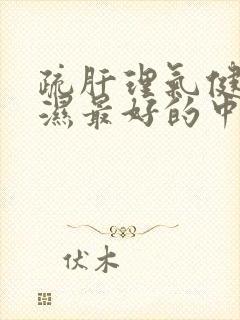 疏肝理氣健
濕最好的中
伏木